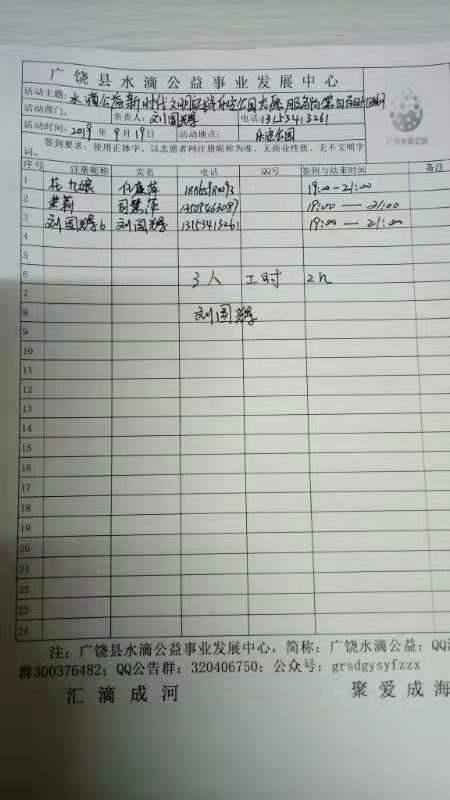 广饶县水滴公益事业发展中心
活动主题: 水滴公益新时代文明实践 公园大愿服务
活动部门: 负责人: 刘国辉 电话 13153413261
活动时间: 2019 年 9 月 19 日 活动地点: 乐安公园
签到要求: 使用正体字, 以志愿者网注册昵称为准, 无商业性质, 无不文明字
词。
广饶水滴公益
序号 注册昵称 实名 电话 QQ号 签到与结束时间 备注
1 花九娘 19:00-21:00
2 茉莉 19:00 — 21:00
3 刘国辉6 刘国辉 13153413261 19:00 — 21:00
4
5
6 3人 工时 2h
7
8 刘国辉
9
10
11
12
13
14
15
16
17
18
19
20
21
22
23
24
注: 广饶县水滴公益事业发展中心, 简称: 广饶水滴公益; QQ
群300376482; QQ公告群: 320406750; 公众号: grsdgysyfzzx
汇滴成河 聚爱成海